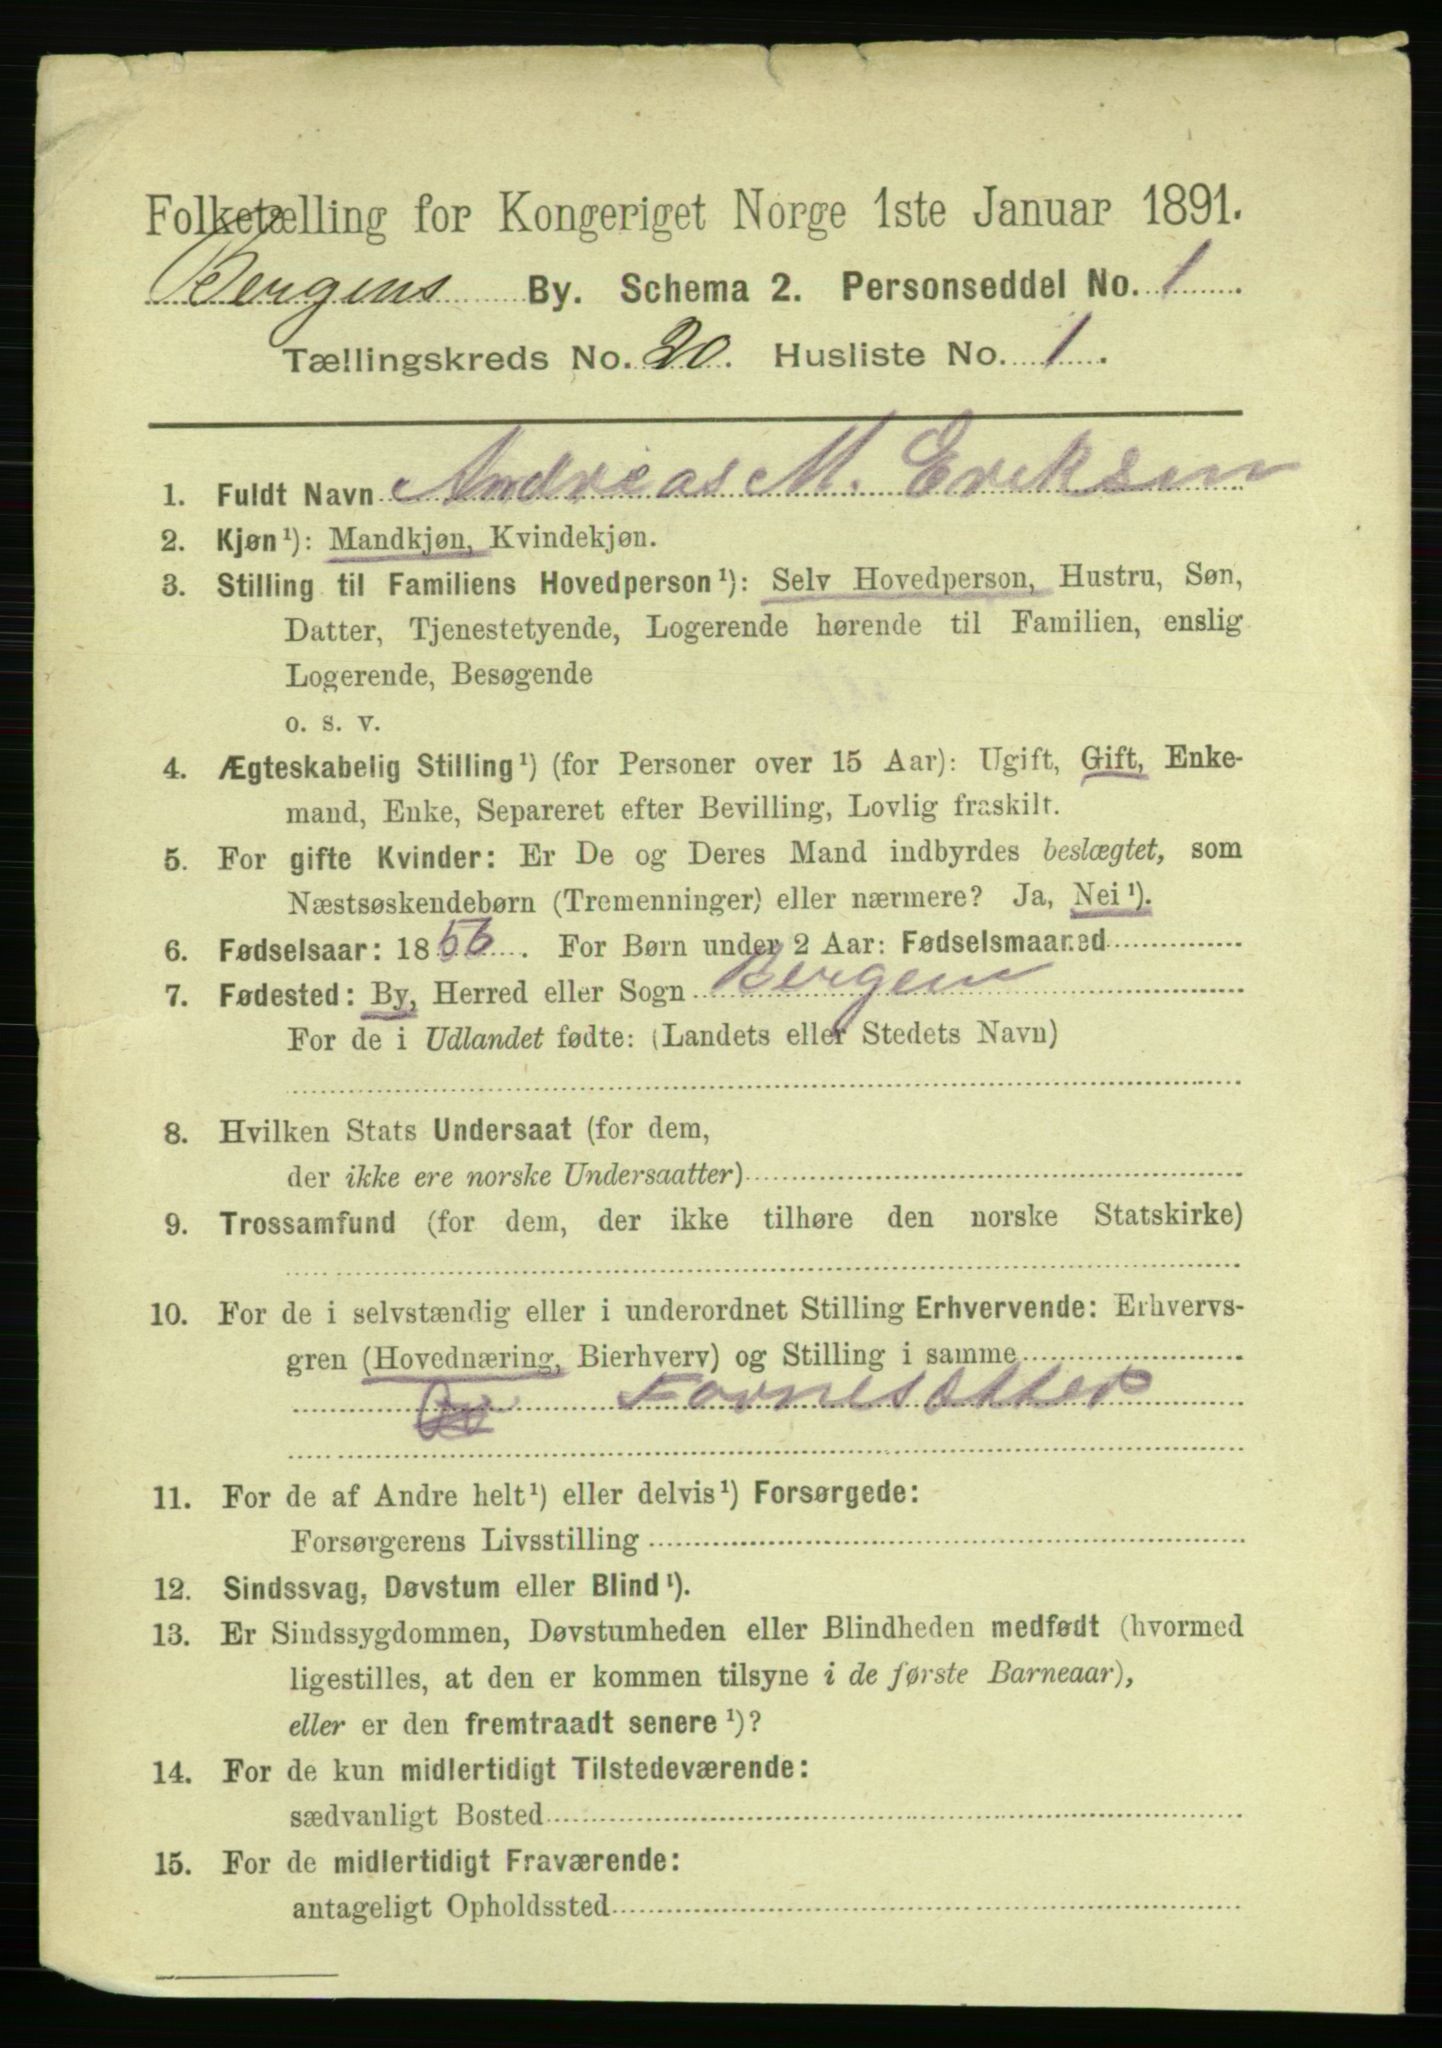 Folketælling for Kongeriget Norge 1ste Januar 1891.
Bergens By. Schema 2. Personseddel No. 1
Tællingskreds No. 20. Husliste No. 1.
1. Fuldt Navn Andreas M. Eriksen
2. Kjøn¹): Mandkjøn, Kvindekjøn.
3. Stilling til Familiens Hovedperson¹): Selv Hovedperson, Hustru, Søn,
Datter, Tjenestetyende, Logerende hørende til Familien, enslig
Logerende, Besøgende
o. s. v.
4. Ægteskabelig Stilling¹) (for Personer over 15 Aar): Ugift, Gift, Enke-
mand, Enke, Separeret efter Bevilling, Lovlig fraskilt.
5. For gifte Kvinder: Er De og Deres Mand indbyrdes beslægtet, som
Næstsøskendebørn (Tremenninger) eller nærmere? Ja, Nei¹).
6. Fødselsaar: 1856. For Børn under 2 Aar: Fødselsmaaned
7. Fødested: By, Herred eller Sogn Bergen
For de i Udlandet fødte: (Landets eller Stedets Navn)
8. Hvilken Stats Undersaat (for dem,
der ikke ere norske Undersaatter)
9. Trossamfund (for dem, der ikke tilhøre den norske Statskirke)
10. For de i selvstændig eller i underordnet Stilling Erhvervende: Erhvervs-
gren (Hovednæring, Bierhverv) og Stilling i samme
11. For de af Andre helt¹) eller delvis¹) Forsørgede:
Forsørgerens Livsstilling
12. Sindssvag, Døvstum eller Blind¹).
13. Er Sindssygdommen, Døvstumheden eller Blindheden medfødt (hvormed
ligestilles, at den er kommen tilsyne i de første Barneaar),
eller er den fremtraadt senere¹)?
14. For de kun midlertidigt Tilstedeværende:
sædvanligt Bosted
15. For de midlertidigt Fraværende:
antageligt Opholdssted